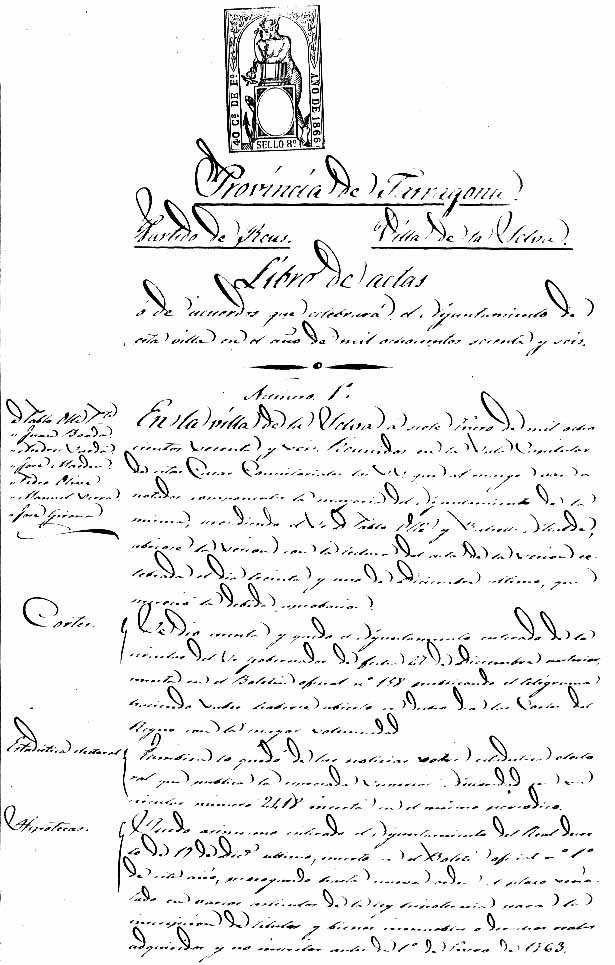 40 Cs DE Eo
AÑO DE 1866
SELLO 8º
Provincia de Tarragona.
Partido de Reus.
Villa de la Selva.
Libro de actas
ó de acuerdos que celebrará el Ayuntamiento de
esta villa en el año de mil ochocientos sesenta y seis.
Numero 1º.
Pablo Olle
Juan Boada
José
Pedro Olivé
Manuel
José Girona
En la villa de la Selva a siete Enero de mil ocho
cientos sesenta y seis. Reunidos en la Sala Capitular
de estas Casas Consistoriales los SS. que al margen van a
notados componentes la mayoria del Ayuntamiento de la
misma, presidiendo el Sr. D. Pablo Ollé y Alcalde,
abriose la sesion con la lectura del acta de la sesion ce
lebrada el dia treinta y uno de Diciembre ultimo, que
mereció la debida aprobacion.
Cortes.
Se dió cuenta y quedó el Ayuntamiento enterado de la
circular del Sr. gobernador de fecha 27 de Diciembre anterior,
inserta en el Boletin oficial nº 158 publicando el telegrama
haciendo saber haberse abierto las Cortes del
Reyno con la mayor solemnidad.
Estadistica electoral
Tambien lo quedó de las noticias sobre estadistica electo
ral que publica la espresada superior autoridad en su
circular número 2418 inserta en el mismo periodico.
Hipotecas.
Quedó asimismo enterado el Ayuntamiento del Real decre
to de 19 de Dice. ultimo, inserto en el Boletin oficial nº 1º
de este año, prorogando hasta nueva orden el plazo seña
lado en varios articulos de la ley hipotecaria para la
inscripcion de titulos y bienes inmuebles o derechos reales
adquiridos y no inscritos antes de 1º de Enero de 1863.